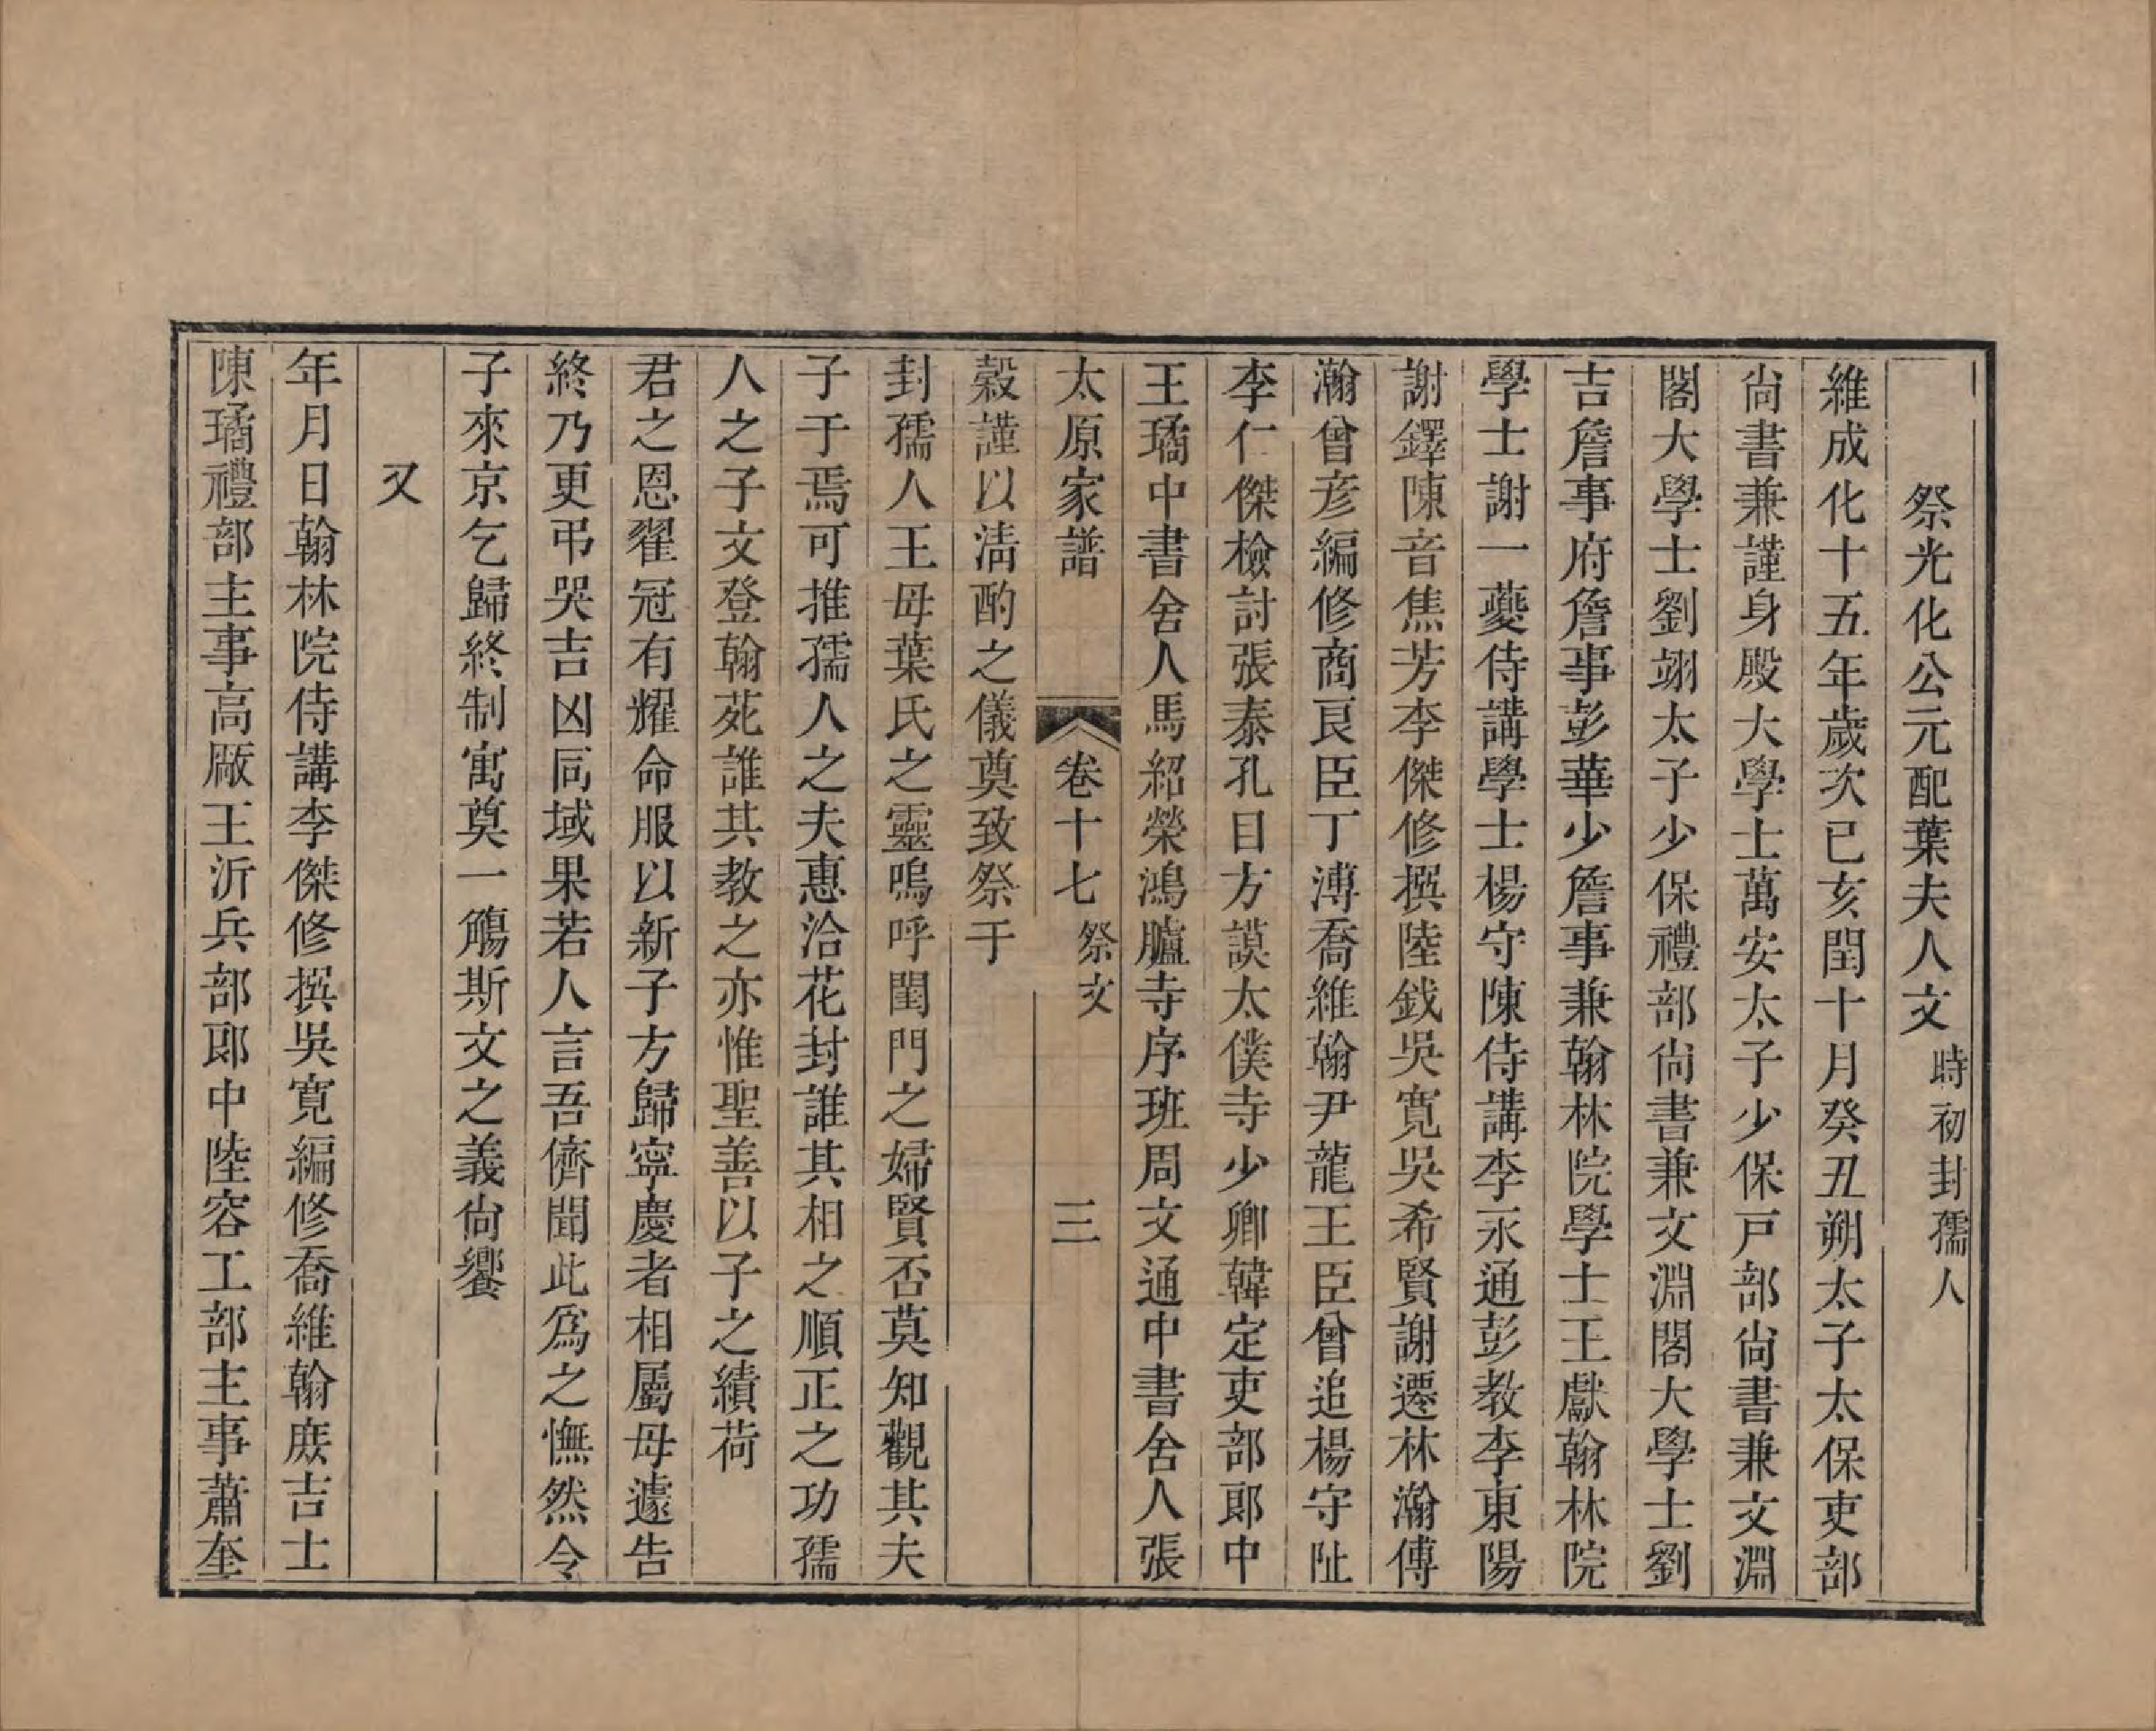 祭光化公元配葉夫人文時初封孺人
維成化十五年歲次己亥閏十月癸丑朔太子太保吏部
尙書兼謹身殿大學士萬安太子少保戸部尙書兼文淵
閣大學士劉翊太子少保禮部尙書兼文淵閣大學士劉
吉詹事府詹事彭華少詹事兼翰林院學士王獻翰林院
學士謝一夔侍講學士楊守陳侍講李永通彭教李東陽
謝鐸陳音焦芳李傑修撰陸釴吳寬吳希賢謝遷林瀚傅
瀚曾彦編修商良臣丁溥喬維翰尹龍王臣曾追楊守阯
李仁傑檢討張泰孔目方謨太僕寺少卿韓定吏部郎中
王璚中書舍人馬紹榮鴻臚寺序班周文通中書舍人張
太原家譜 卷十七 祭文 三
穀謹以清酌之儀奠致祭于
封孺人王母葉氏之靈嗚呼閨門之婦賢否莫知觀其夫
子于焉可推孺人之夫惠洽花封誰其相之順正之功孺
人之子文登翰苑誰其教之亦惟聖善以子之績荷
君之恩翟冠有耀命服以新子方歸寧慶者相屬母遽告
終乃更弔哭吉凶同域果若人言吾儕聞此爲之憮然令
子來京乞歸終制寓奠一觴斯文之義尙饗
又
年月日翰林院侍講李傑修撰吳寬編修喬維翰庶吉士
陳璚禮部主事高厰王沂兵部郎中陸容工部主事蕭奎